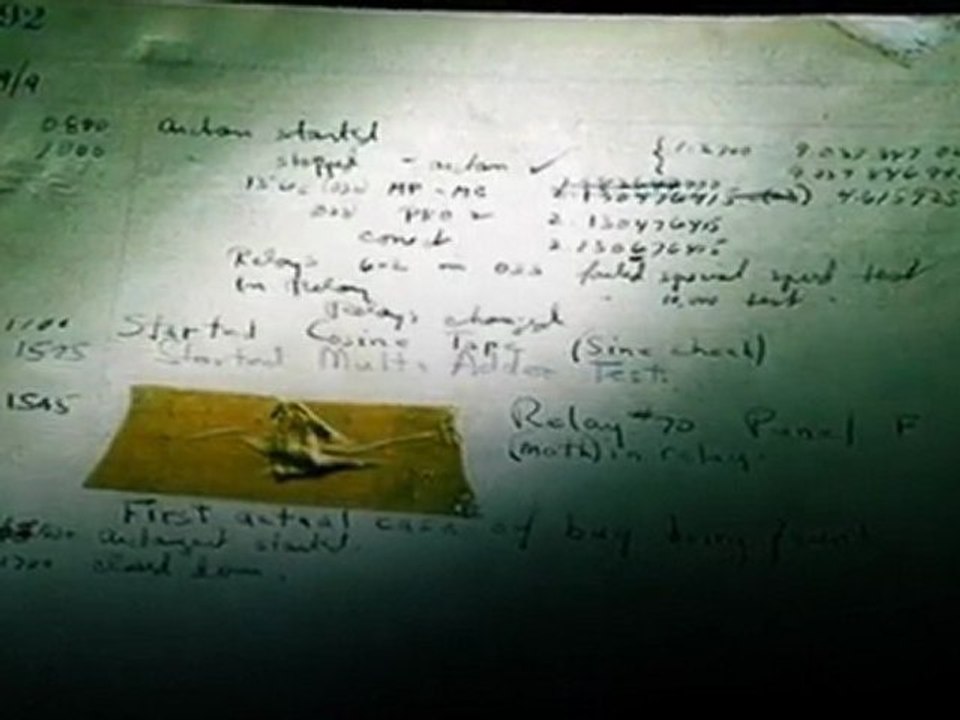 92
9/9
0800 antan started
1000 stopped - antan ✓ { 1.2700 9.037 847 02
9.037 846 99
MP - MC 2.130476415 4.615925
033 PRO 2 2.130476415
conect 2.130676415
Relays 6-2 in 033 failed special speed test
in Relay 10,000 test
Relays changed
1100 Started Cosine Tape (Sine check)
1525 Started Mult+Adder Test.
1545 Relay #70 Panel F
(moth) in relay.
First actual case of bug being found
antangent started.
1700 closed down.